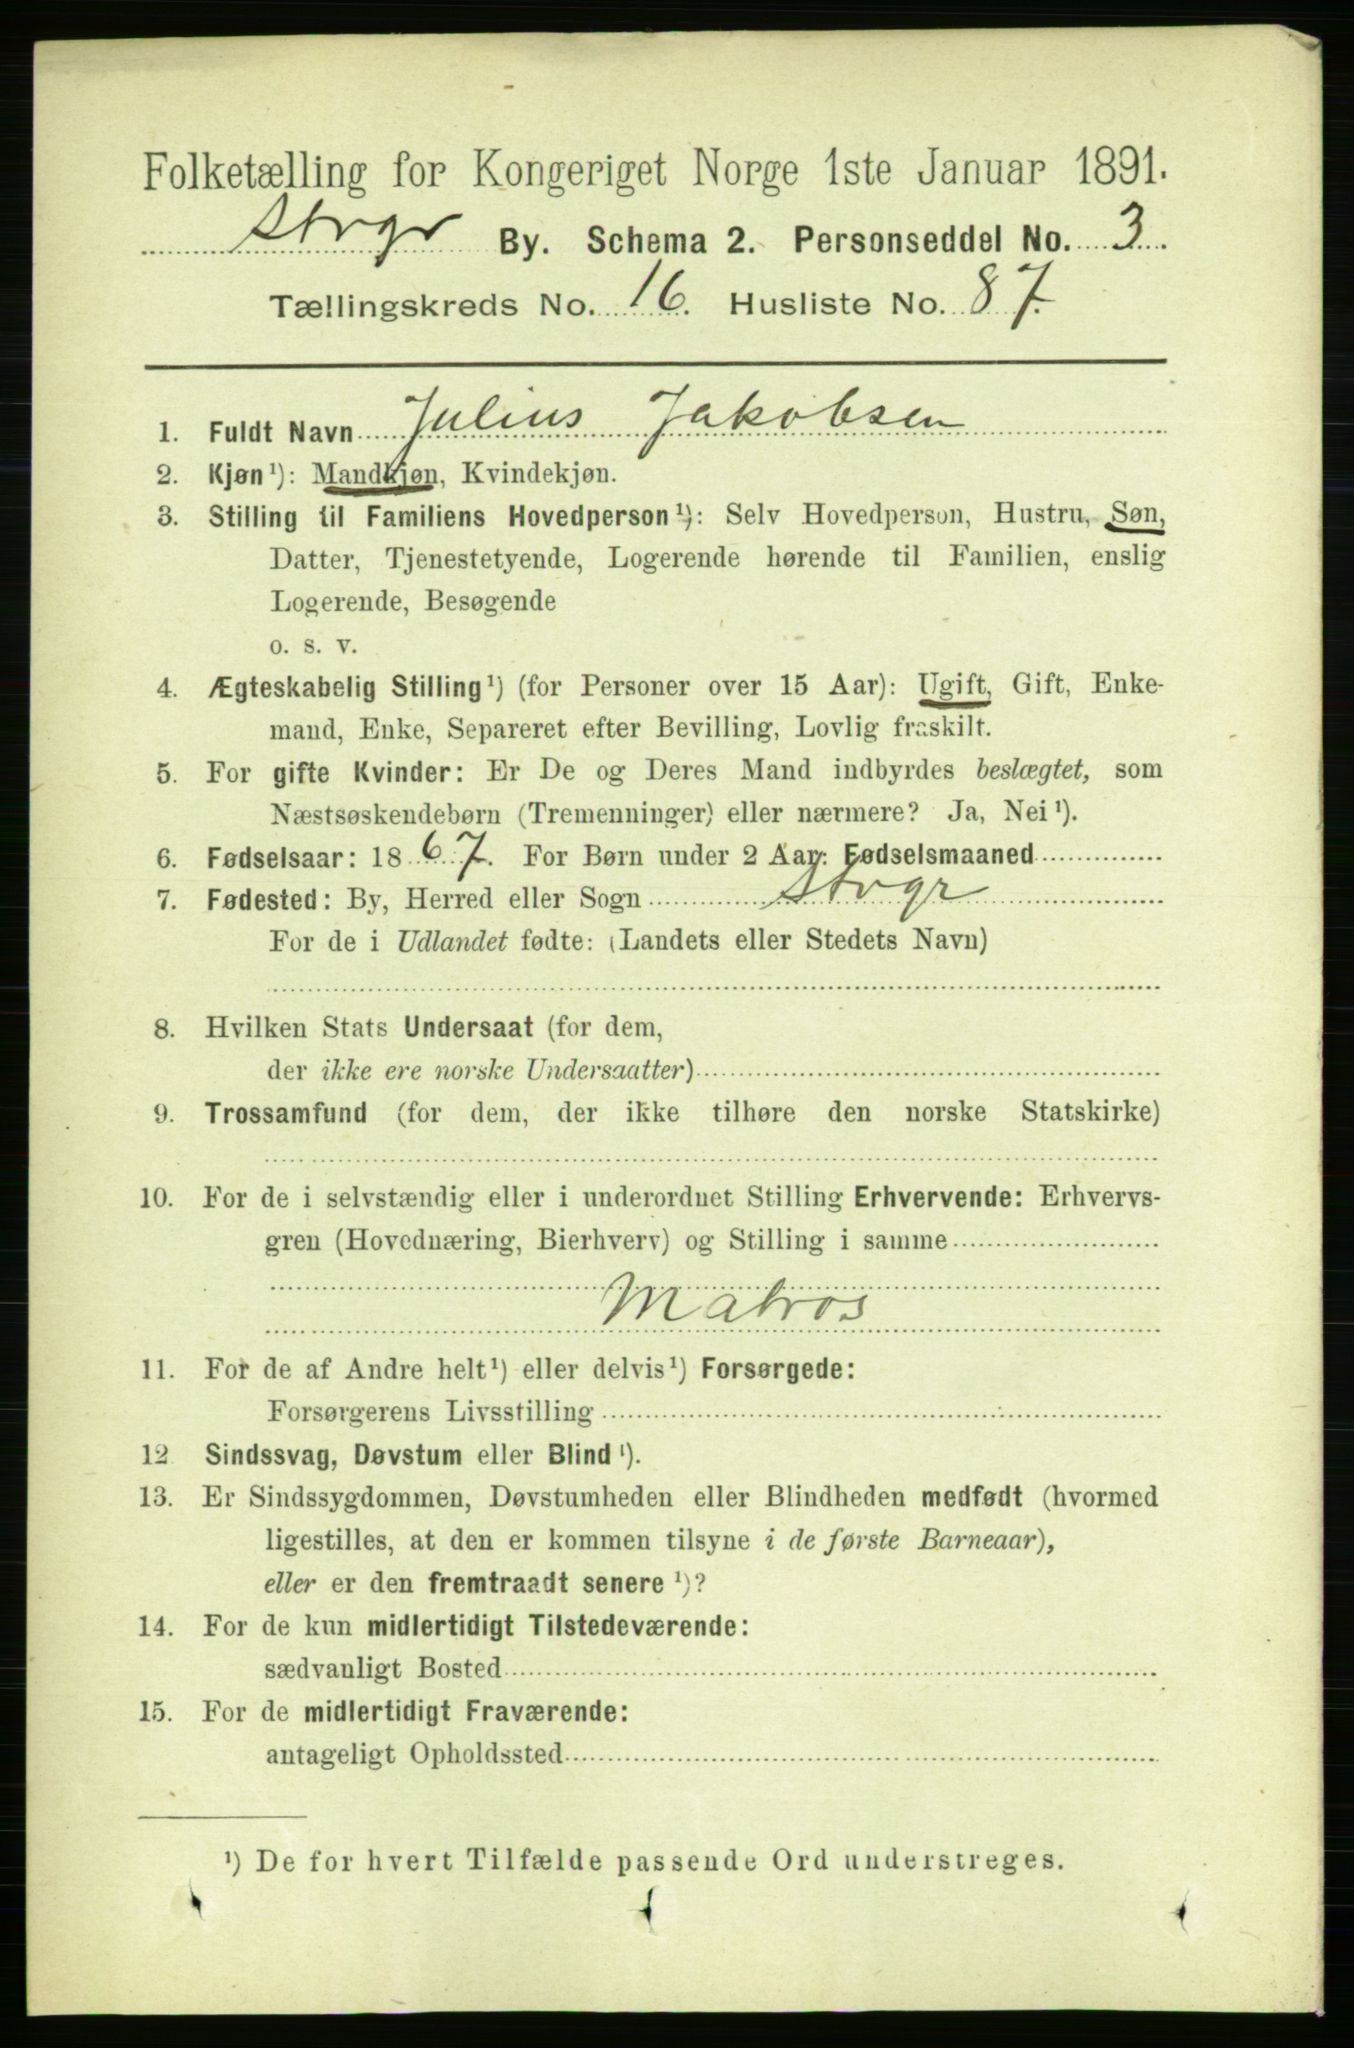 Folketælling for Kongeriget Norge 1ste Januar 1891.
Stvgr By. Schema 2. Personseddel No. 3
Tællingskreds No. 16. Husliste No. 87.
1. Fuldt Navn Julius Jakobsen
2. Kjøn ¹): Mandkjøn, Kvindekjøn.
3. Stilling til Familiens Hovedperson ¹): Selv Hovedperson, Hustru, Søn,
Datter, Tjenestetyende, Logerende hørende til Familien, enslig
Logerende, Besøgende
o. s. v.
4. Ægteskabelig Stilling ¹) (for Personer over 15 Aar): Ugift, Gift, Enke-
mand, Enke, Separeret efter Bevilling, Lovlig fraskilt.
5. For gifte Kvinder: Er De og Deres Mand indbyrdes beslægtet, som
Næstsøskendebørn (Tremenninger) eller nærmere? Ja, Nei ¹).
6. Fødselsaar: 1867. For Børn under 2 Aar: Fødselsmaaned
7. Fødested: By, Herred eller Sogn Stvgr
For de i Udlandet fødte: (Landets eller Stedets Navn)
8. Hvilken Stats Undersaat (for dem,
der ikke ere norske Undersaatter)
9. Trossamfund (for dem, der ikke tilhøre den norske Statskirke)
10. For de i selvstændig eller i underordnet Stilling Erhvervende: Erhvervs-
gren (Hovednæring, Bierhverv) og Stilling i samme
Matros
11. For de af Andre helt ¹) eller delvis ¹) Forsørgede:
Forsørgerens Livsstilling
12 Sindssvag, Døvstum eller Blind ¹).
13. Er Sindssygdommen, Døvstumheden eller Blindheden medfødt (hvormed
ligestilles, at den er kommen tilsyne i de første Barneaar),
eller er den fremtraadt senere ¹)?
14. For de kun midlertidigt Tilstedeværende:
sædvanligt Bosted
15. For de midlertidigt Fraværende:
antageligt Opholdssted
¹) De for hvert Tilfælde passende Ord understreges.